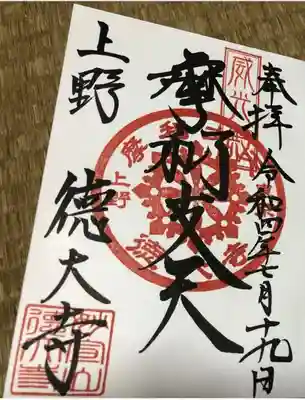 奉拝 令和四年七月十九日
威光
摩利支天
上野
上野 徳大寺